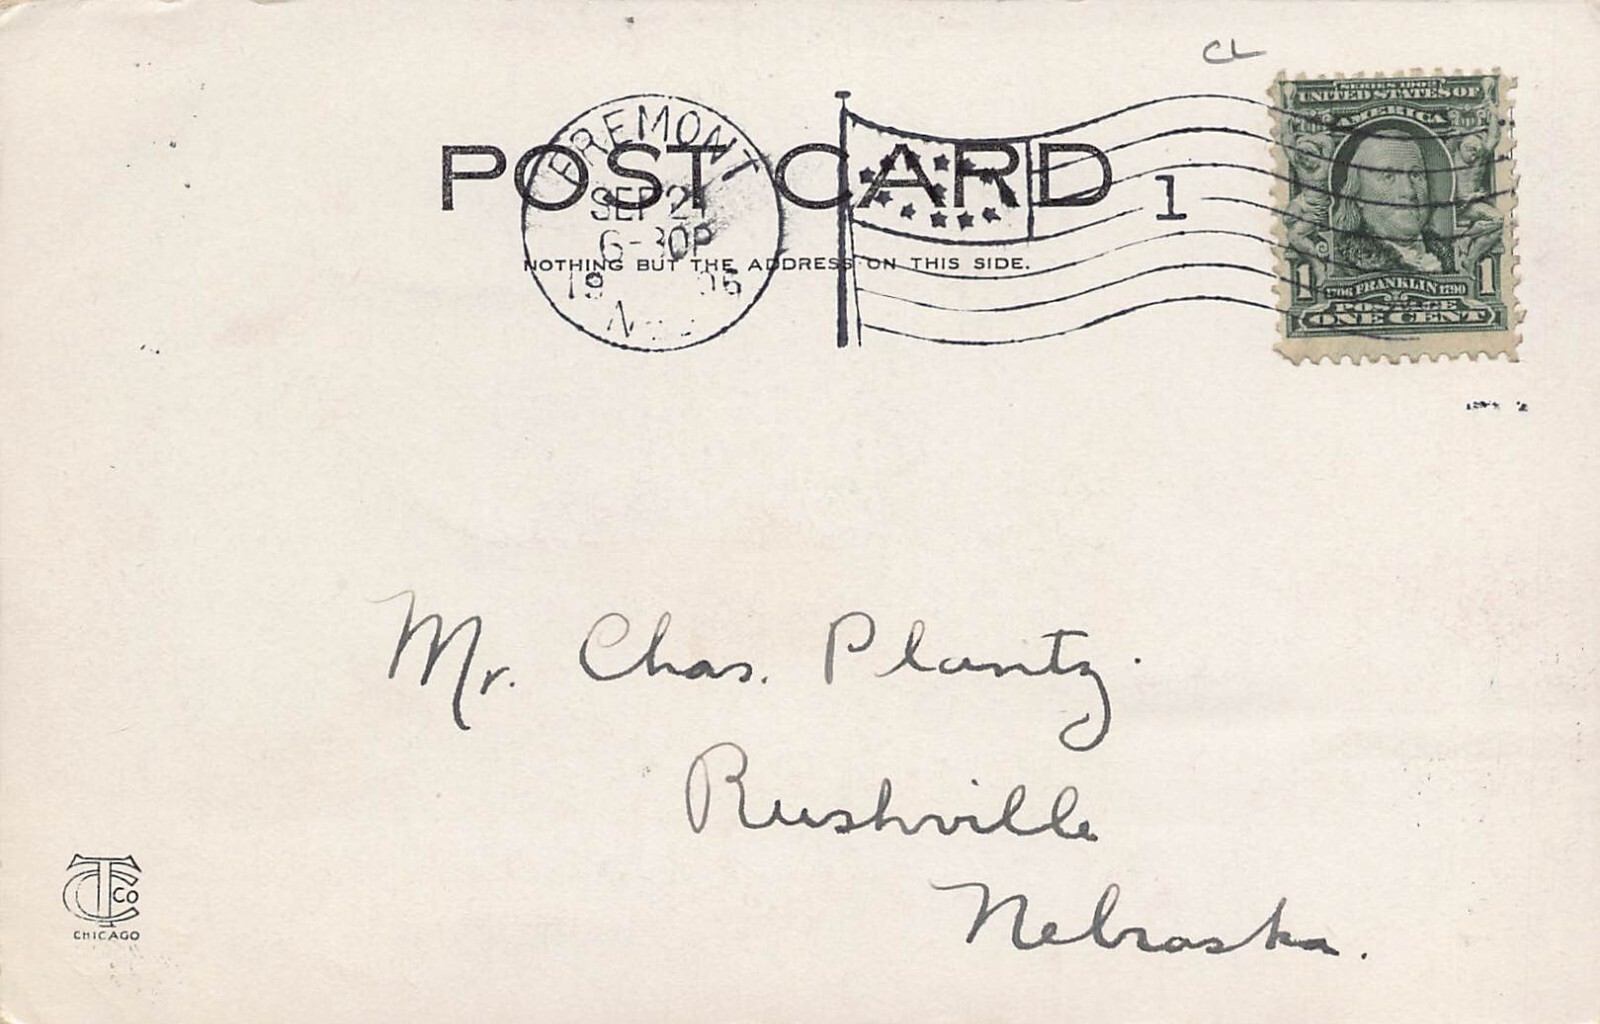 CL
POST CARD
NOTHING BUT THE ADDRESS ON THIS SIDE.
FREMONT
SEP 21
6-30P
1906
1
SERIES 1902
UNITED STATES OF
AMERICA
1706 FRANKLIN 1790
1 1
POSTAGE
ONE CENT
Mr. Chas. Plantz.
Rushville
Nebraska.
TC CO
CHICAGO